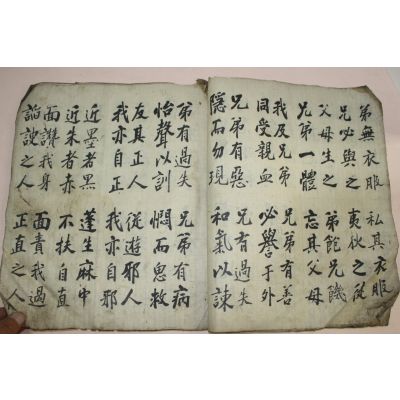 弟無衣服 私其衣服
兄必與之 夷狄之徒
父母生之 弟飽兄飢
兄弟一體 忘其父母
我及兄弟 兄弟有善
同受親血 必譽于外
兄弟有惡 兄有過失
隱而勿現 和氣以諫
弟有過失 兄弟有病
怡聲以訓 憫而思救
友其正人 從遊邪人
我亦自正 我亦自邪
近墨者黑 蓬生麻中
近朱者赤 不扶自直
面讚我身 面責我過
諂諛之人 正直之人